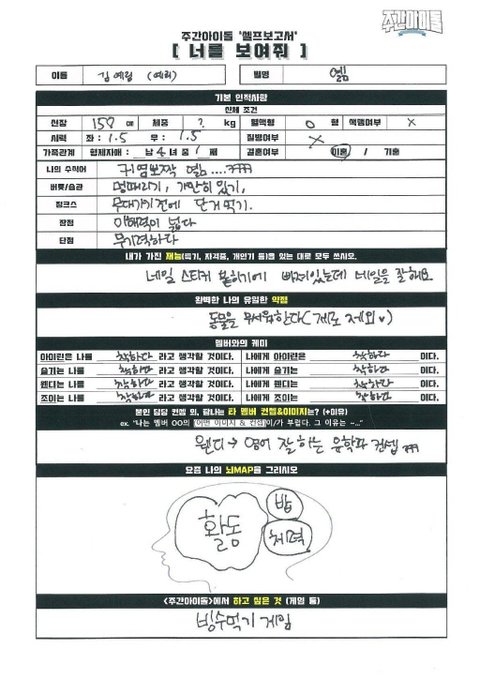 주간아이돌
주간아이돌 '셀프보고서'
[ 너를 보여줘 ]
이름 김예림 (예리) 별명 옐
기본 인적사항
신체 조건
신장 159 cm 체중 ? kg 혈액형 O 형 색맹여부 X
시력 좌 : 1.5 우 : 1.5 질병여부 X
가족관계 형제자매 : 남 4녀 중 1 째 결혼여부 미혼 / 기혼
나의 수식어 귀염뽀짝 옐....ㅋㅋㅋ
버릇/습관 멍때리기, 가만히 있기,
징크스 무대가기전에 단거 먹기.
장점 이해력이 넓다
단점 무기력하다
내가 가진 재능(특기, 자격증, 개인기 등)을 있는 대로 모두 쓰시오.
네일 스티커 붙히기에 빠져있는데 네일을 잘해요.
완벽한 나의 유일한 약점
동물을 무서워한다( 제외 ♥)
멤버와의 케미
아이린은 나를 착하다 라고 생각할 것이다. 나에게 아이린은 착하다 이다.
슬기는 나를 착하다 라고 생각할 것이다. 나에게 슬기는 착하다 이다.
웬디는 나를 착하다 라고 생각할 것이다. 나에게 웬디는 착하다 이다.
조이는 나를 착하다 라고 생각할 것이다. 나에게 조이는 착하다 이다.
본인 담당 컨셉 외, 탐나는 타 멤버 컨셉&이미지는? (+이유)
ex. "나는 멤버 OO의 [어떤 이미지 & 컨셉]이/가 부럽다. 그 이유는 ~..."
웬디 → 영어 잘 하는 유학파 컨셉 ㅋㅋㅋ
요즘 나의 뇌MAP을 그리시오
활동
밥
체력
<주간아이돌>에서 하고 싶은 것 (게임 등)
빙수먹기 게임